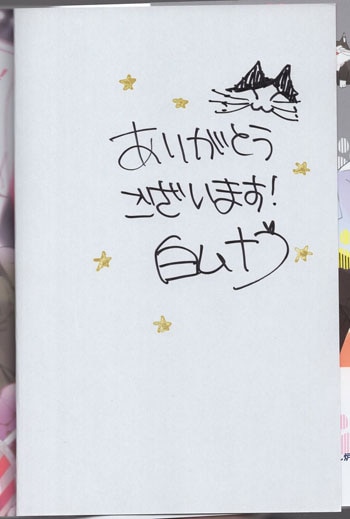 ありがとう
ございます!
白ムナヅ